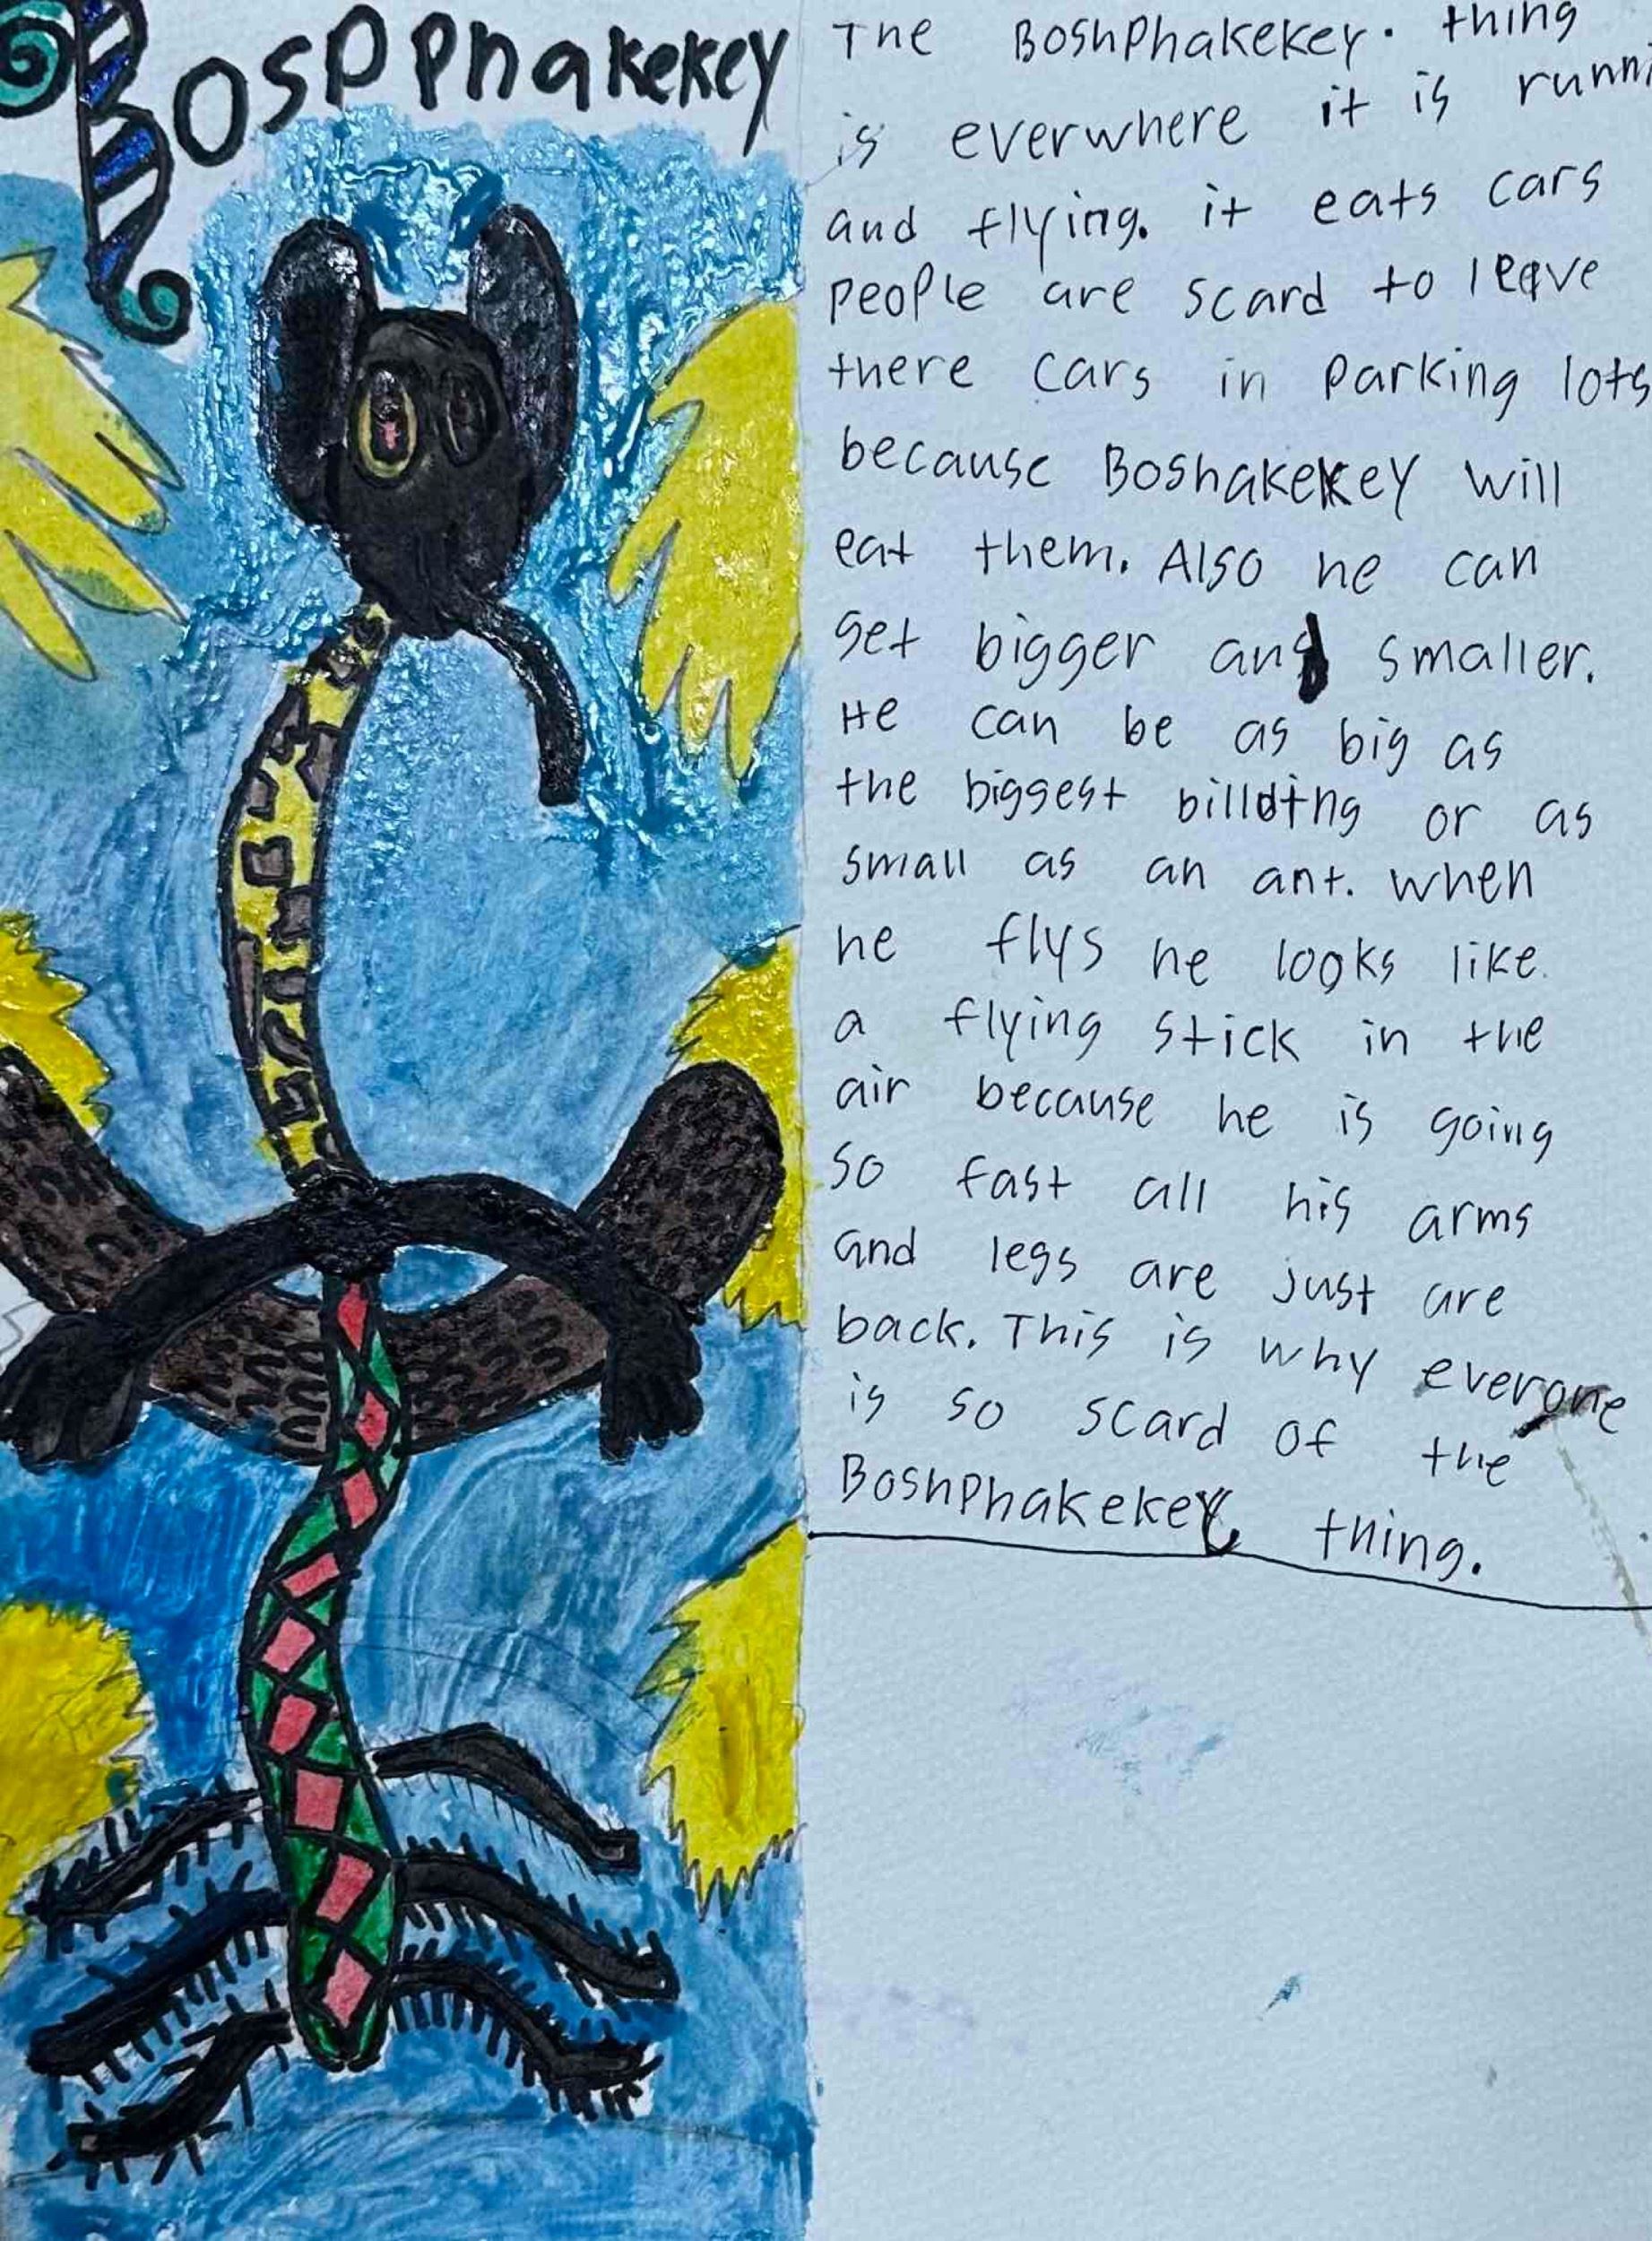 Bospphakekey
The Boshphakekey. thing
is everwhere it is runni
and flying. it eats cars
people are scard to leave
there cars in parking lots
because Boshakekey will
eat them. Also he can
get bigger and smaller.
He can be as big as
the biggest billding or as
small as an ant. when
he flys he looks like
a flying stick in the
air because he is going
so fast all his arms
and legs are just are
back. This is why everone
is so scard of the
Boshphakekey thing.